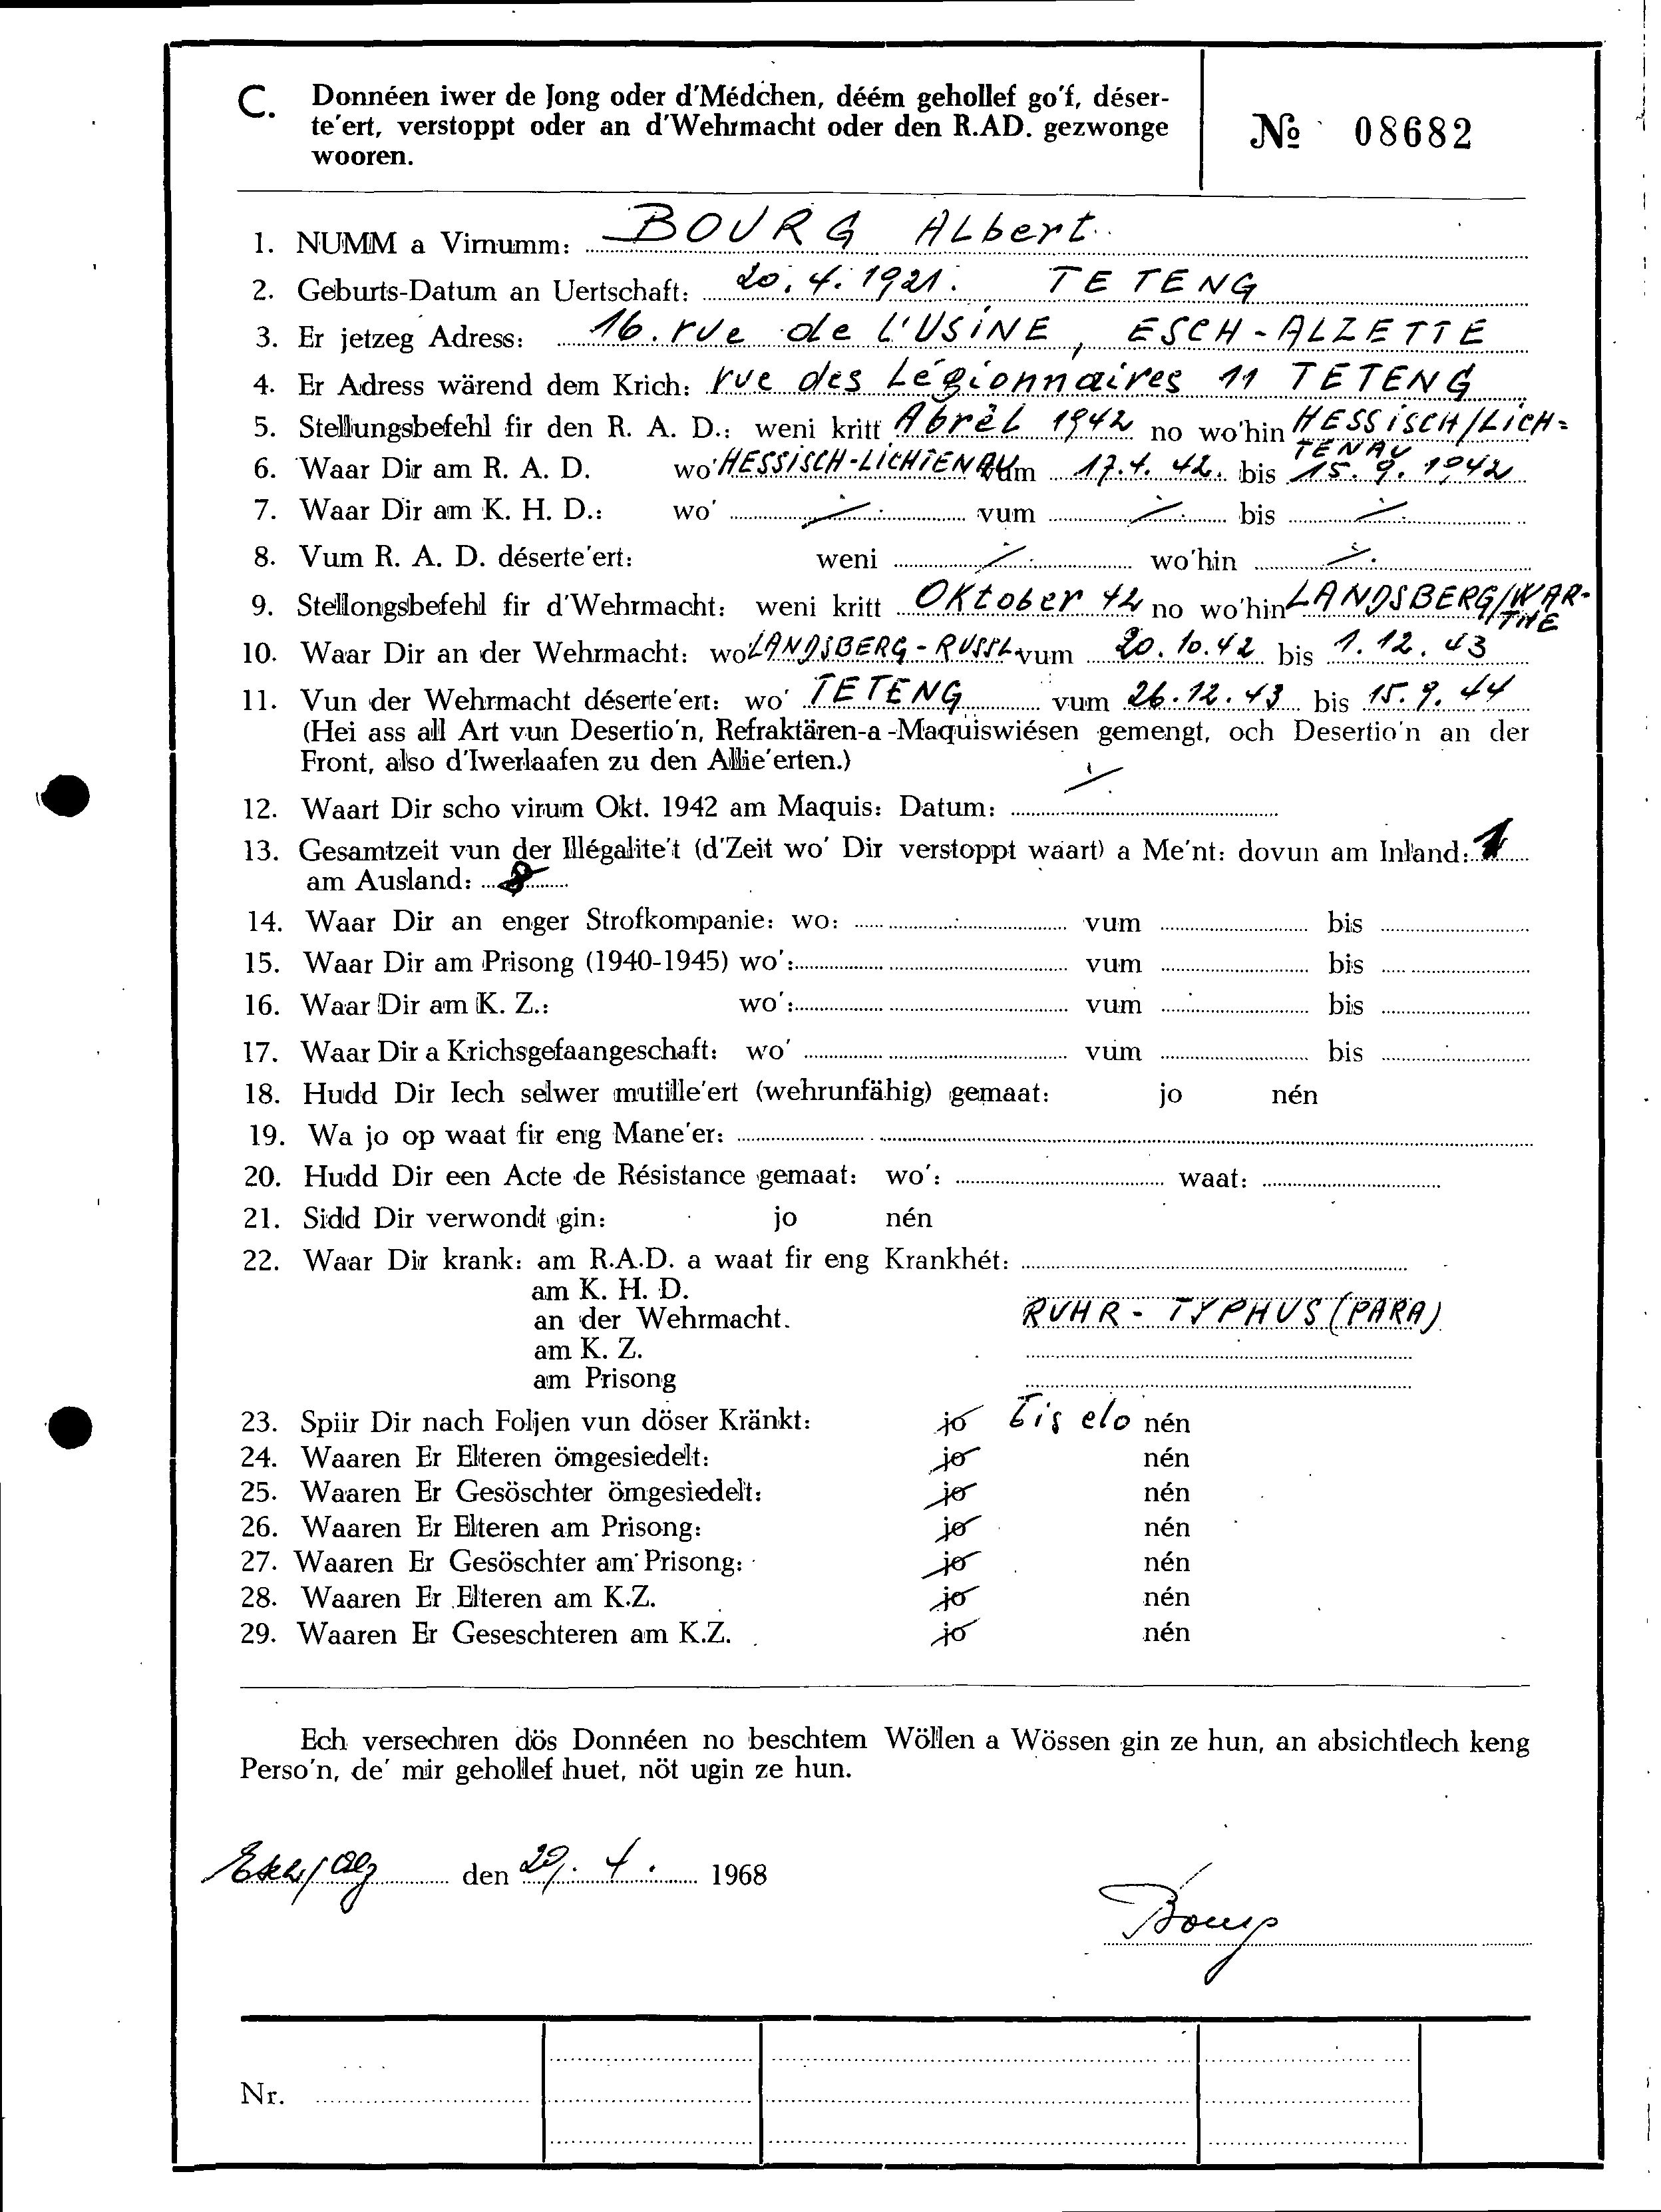 C. Donnéen iwer de Jong oder d'Médchen, déém gehollef go'f, déser-
te'ert, verstoppt oder an d'Wehrmacht oder den R.AD. gezwonge
wooren.
№ 08682
1. NUMM a Virnumm: BOURG ALbert
2. Geburts-Datum an Uertschaft: 20.4.1921. TETENG
3. Er jetzeg Adress: 16. rue de L'USiNE, ESCH-ALZETTE
4. Er Adress wärend dem Krich: rue des Légionnaires 11 TETENG
5. Stellungsbefehl fir den R. A. D.: weni kritt Abrël 1942 no wo'hin HESSiSCH/LiCH=
TENAU
6. Waar Dir am R. A. D. wo' HESSISCH-LICHTENAU vum 17.4.42. bis 15.9.1942
7. Waar Dir am K. H. D.: wo' vum bis
8. Vum R. A. D. déserte'ert: weni wo'hin
9. Stellongsbefehl fir d'Wehrmacht: weni kritt OKtober 42 no wo'hin LANDSBERG/WAR-
THE
10. Waar Dir an der Wehrmacht: wo LANDSBERG-RUSSL vum 20.10.42 bis 1.12.43
11. Vun der Wehrmacht déserte'ert: wo' TETENG vum 26.12.43 bis 15.9.44
(Hei ass all Art vun Desertio'n, Refraktären-a-Maquiswiésen gemengt, och Desertio'n an der
Front, also d'Iwerlaafen zu den Allie'erten.)
12. Waart Dir scho virum Okt. 1942 am Maquis: Datum:
13. Gesamtzeit vun der Illégalite't (d'Zeit wo' Dir verstoppt waart) a Me'nt: dovun am Inland:
am Ausland:
14. Waar Dir an enger Strofkompanie: wo: vum bis
15. Waar Dir am Prisong (1940-1945) wo': vum bis
16. Waar Dir am K. Z.: wo': vum bis
17. Waar Dir a Krichsgefaangeschaft: wo' vum bis
18. Hudd Dir Iech selwer mutille'ert (wehrunfähig) gemaat: jo nén
19. Wa jo op waat fir eng Mane'er:
20. Hudd Dir een Acte de Résistance gemaat: wo': waat:
21. Sidd Dir verwondt gin: jo nén
22. Waar Dir krank: am R.A.D. a waat fir eng Krankhét:
am K. H. D.
an der Wehrmacht. RUHR - TYPHUS (PARA)
am K. Z.
am Prisong
23. Spiir Dir nach Foljen vun döser Kränkt: jo bis elo nén
24. Waaren Er Elteren ömgesiedelt: jo nén
25. Waaren Er Gesöschter ömgesiedelt: jo nén
26. Waaren Er Elteren am Prisong: jo nén
27. Waaren Er Gesöschter am Prisong: jo nén
28. Waaren Er Elteren am K.Z. jo nén
29. Waaren Er Geseschteren am K.Z. jo nén
Ech versechren dös Donnéen no beschtem Wöllen a Wössen gin ze hun, an absichtlech keng
Perso'n, de' mir gehollef huet, nöt ugin ze hun.
Esch/Alz den 29. 4. 1968
Bourg
Nr.